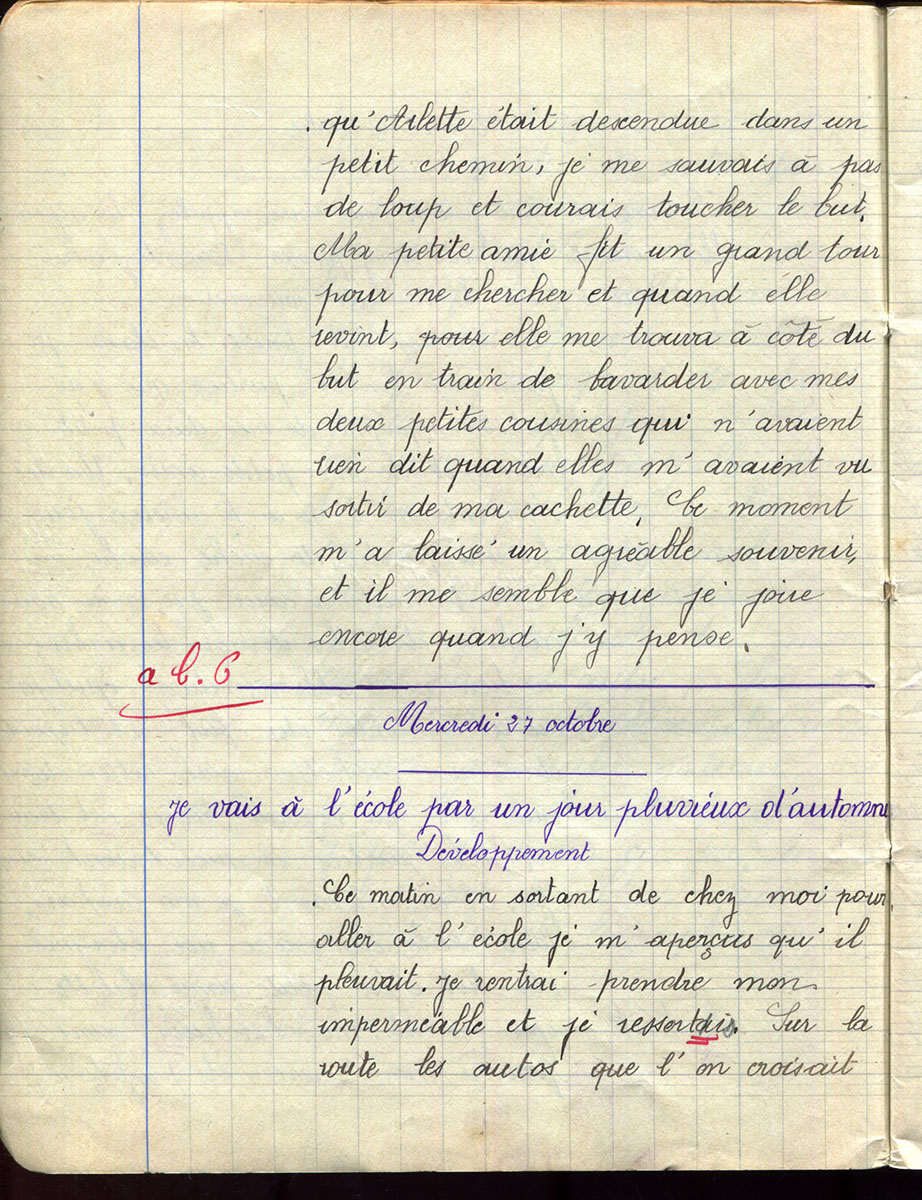 qu'Arlette était descendue dans un
petit chemin, je me sauvais à pas
de loup et courais toucher le but.
Ma petite amie fit un grand tour
pour me chercher et quand elle
revint, pour elle me trouva à côté du
but en train de bavarder avec mes
deux petites cousines qui n'avaient
rien dit quand elles m'avaient vu
sortir de ma cachette. Ce moment
m'a laissé un agréable souvenir,
et il me semble que je joue
encore quand j'y pense.
Mercredi 27 octobre
Je vais à l'école par un jour pluvieux d'automne
Développement
Ce matin en sortant de chez moi pour
aller à l'école je m'aperçus qu'il
pleuvait. Je rentrai prendre mon
imperméable et je ressortais. Sur la
route les autos que l'on croisait